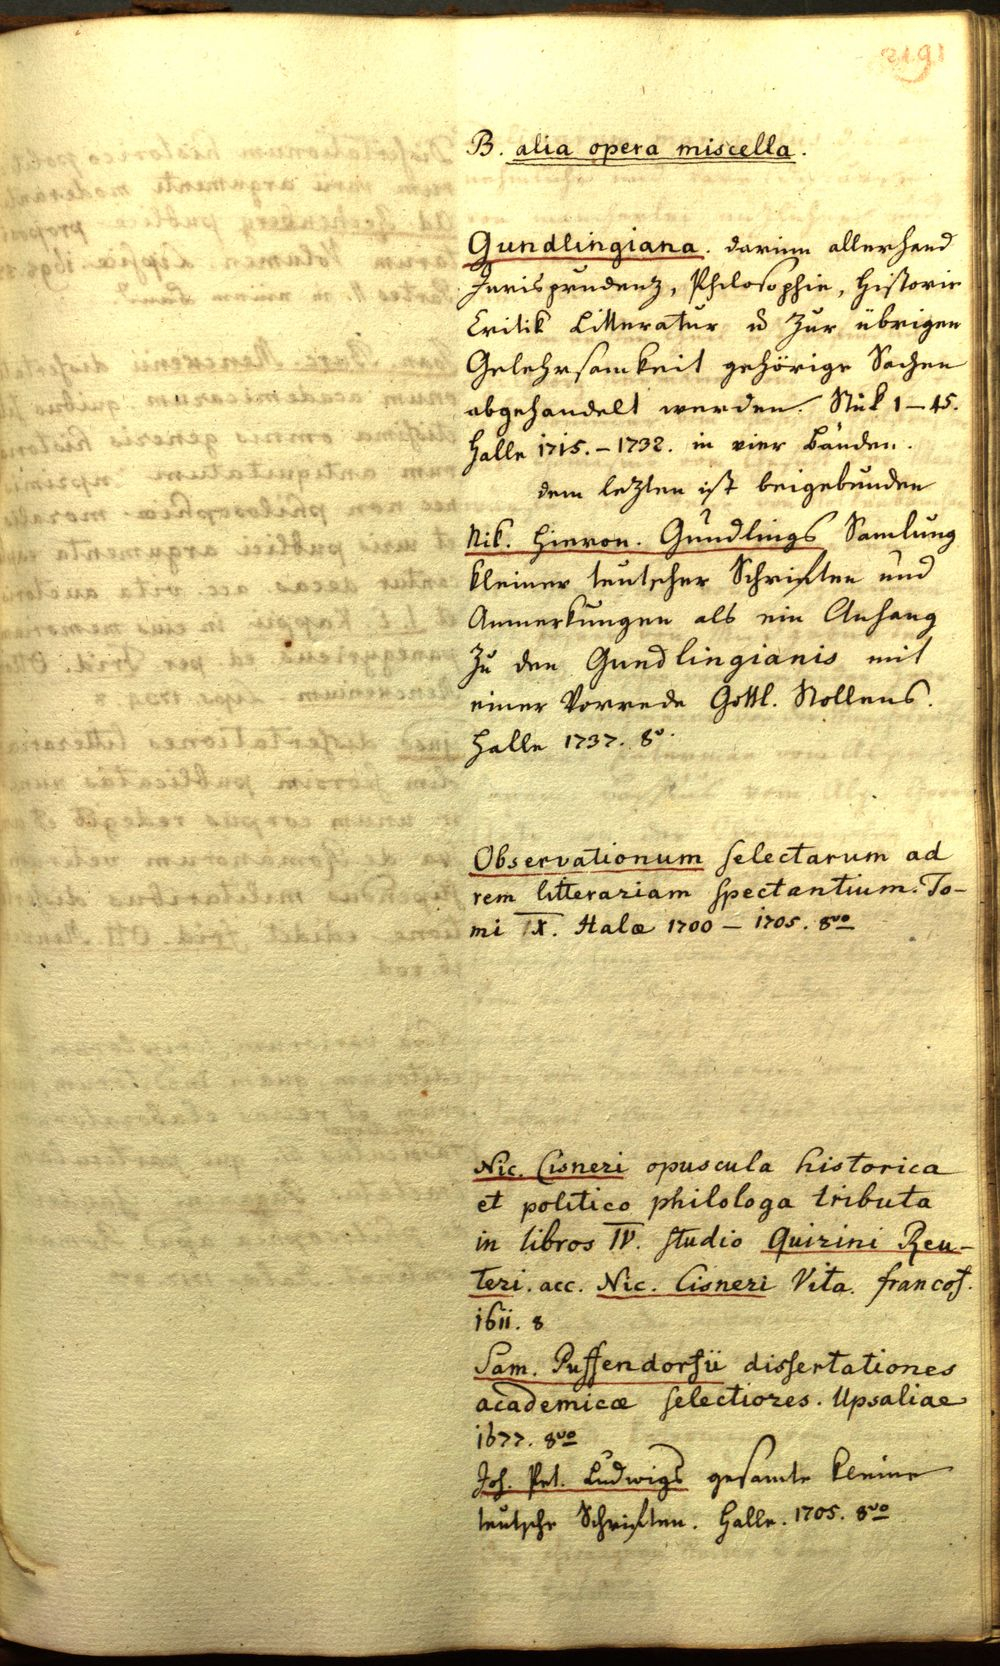 B. alia opera miscella.
Gundlingiana. darinn allerhand
Jurisprudenz, Philosophie, Historie
Critik Litteratur u zur übrigen
Gelehrsamkeit gehörige Sachen
abgehandelt werden. Stük 1–45.
Halle 1715.–1732. in vier Bänden.
dem lezten ist beigebunden
Nik. Hieron. Gundlings Samlung
kleiner teutscher Schriften und
Anmerkungen als ein Anhang
zu den Gundlingianis mit
einer Vorrede Gottl. Stollens.
Halle 1737. 8º.
Observationum selectarum ad
rem litterariam spectantium. To-
mi IX. Halæ 1700 – 1705. 8vo
Nic. Cisneri opuscula historica
et politico philologa tributa
in libros IV. studio Quirini Reu-
teri. acc. Nic. Cisneri Vita. francof.
1611. 8
Sam. Puffendorfii dissertationes
academicæ selectiores. Upsaliae
1677. 8vo
Joh. Pet. Ludwigs gesamte kleine
teutsche Schriften. Halle. 1705. 8vo